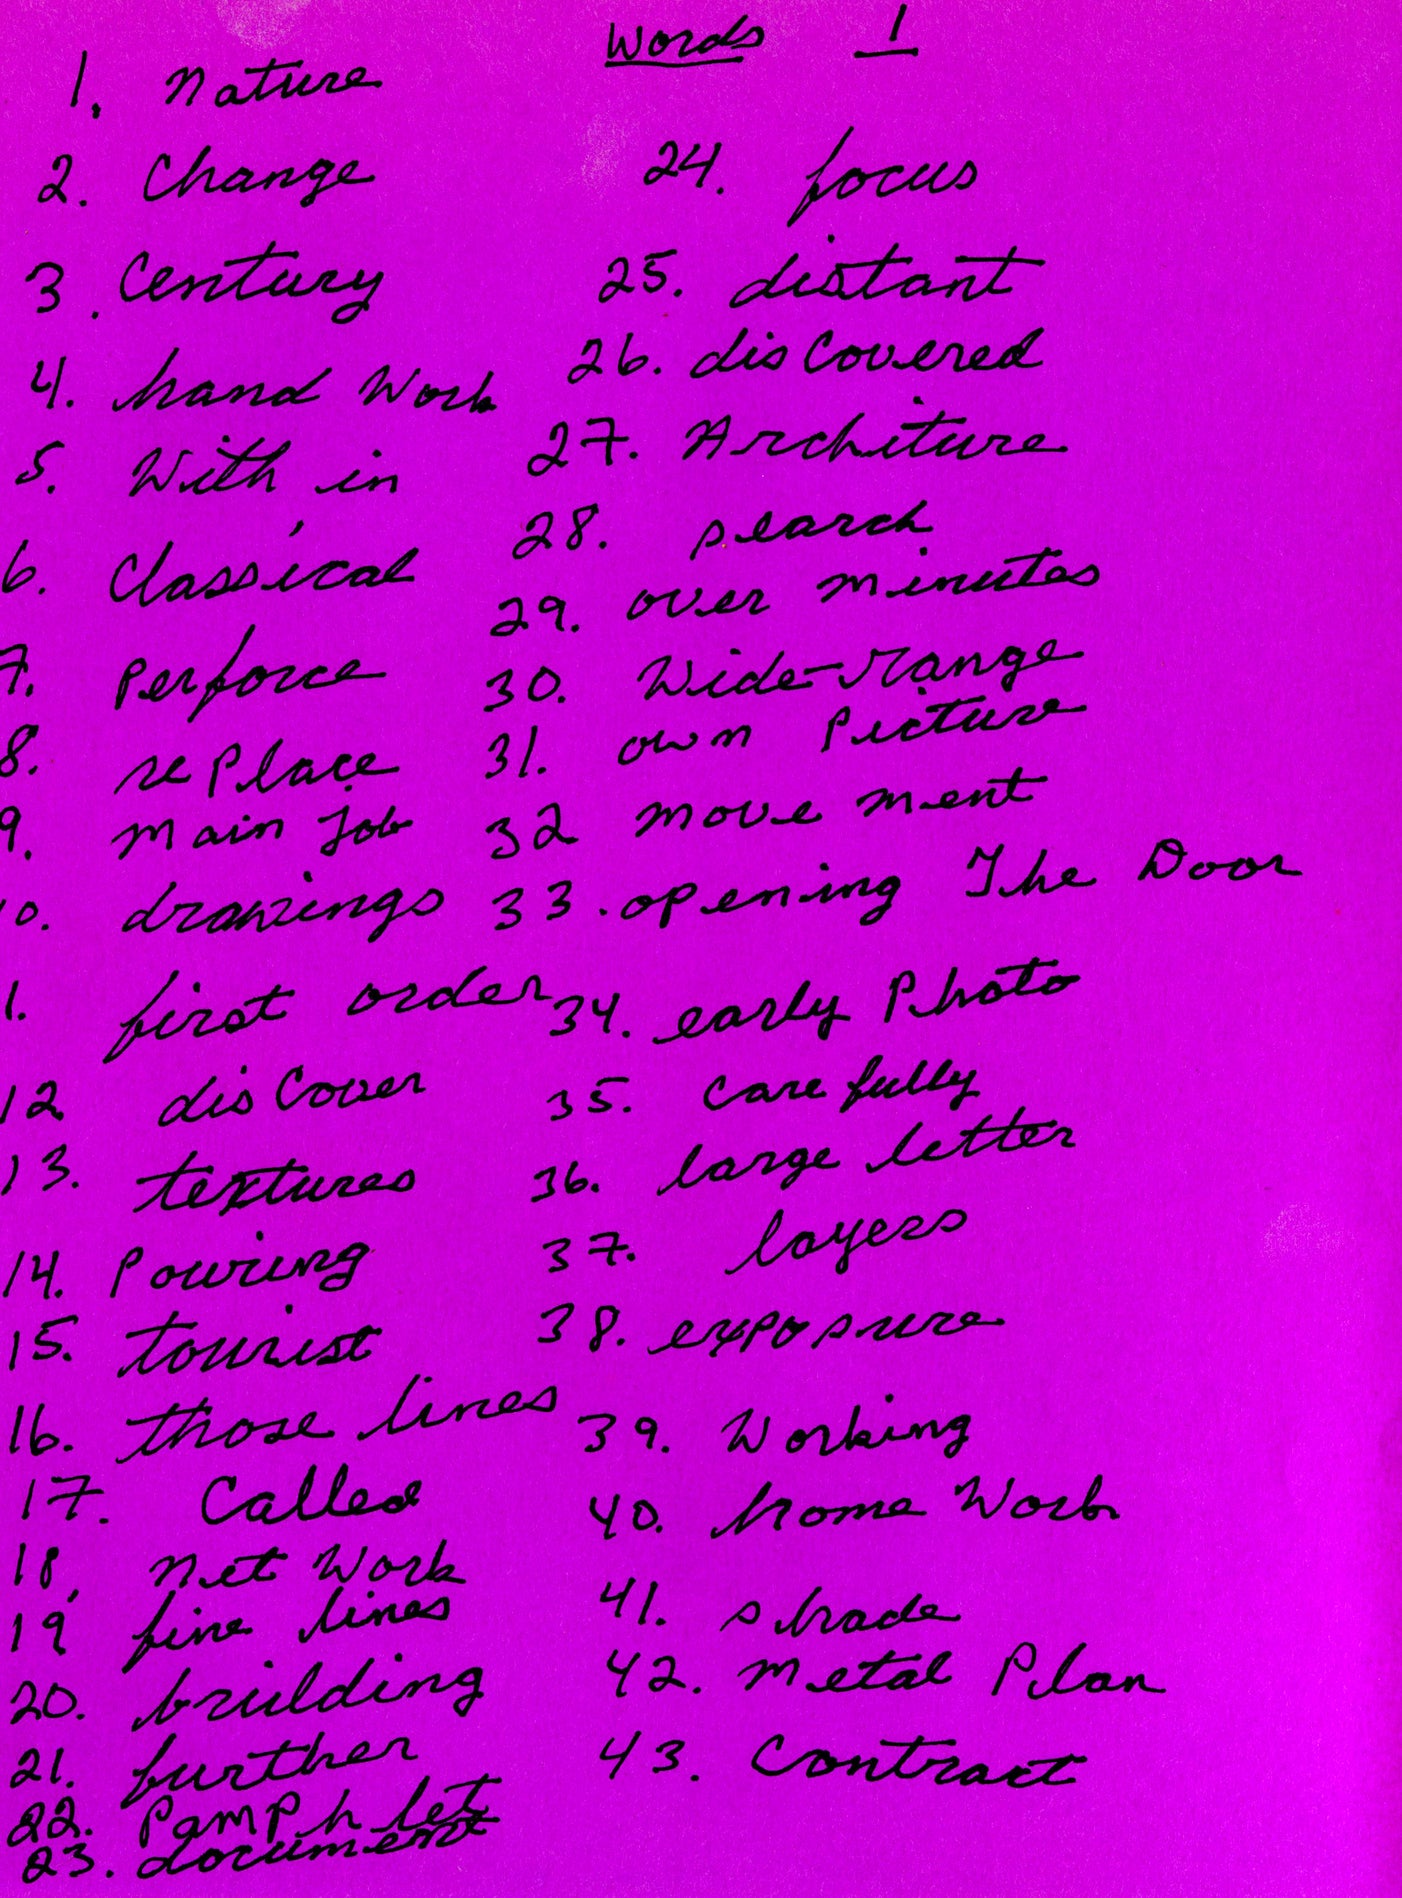 Words 1
1. Nature
2. Change
3. Century
4. hand Work
5. With in
6. Classical
7. Perforce
8. rePlace
9. Main Job
10. drawings
1. first order
12 disCover
13. textures
14. Pouring
15. tourist
16. those lines
17. Called
18. Net Work
19 fine lines
20. building
21. further
22. PamPhlet
23. document
24. focus
25. distant
26. disCovered
27. Architure
28. search
29. over minutes
30. Wide-range
31. own Picture
32 move ment
33. opening The Door
34. early Photo
35. Care fully
36. large letter
37. layers
38. exposure
39. Working
40. home Work
41. shade
42. Metal Plan
43. Contract